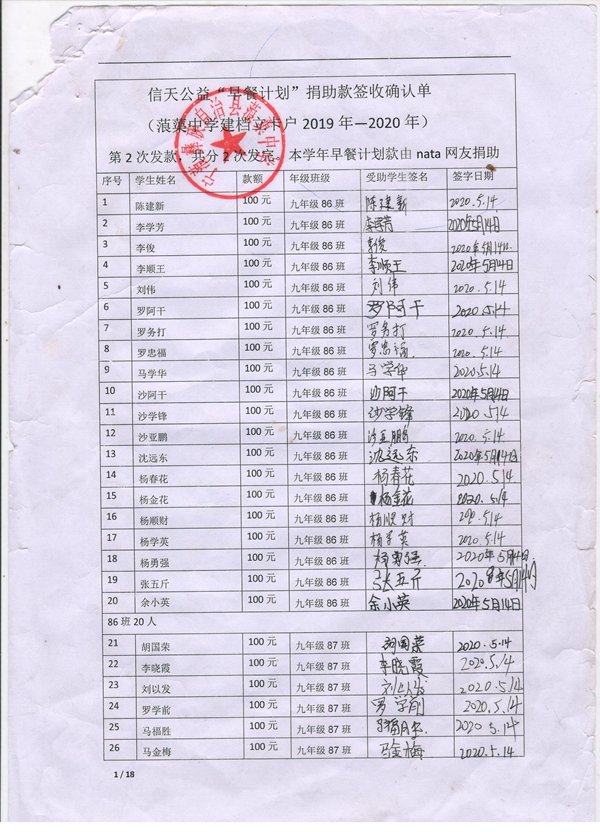 信天公益“早餐计划”捐助款签收确认单
（蒗蕖中学建档立卡户 2019 年—2020 年）
第 2 次发款，共分 2 次发完。本学年早餐计划款由 nata 网友捐助
序号 学生姓名 款额 年级班级 受助学生签名 签字日期
1 陈建新 100 元 九年级 86 班 陈建新 2020.5.14
2 李学芳 100 元 九年级 86 班 李学芳 2020年5月14日
3 李俊 100 元 九年级 86 班 李俊 2020年5月14日.
4 李顺王 100 元 九年级 86 班 李顺王 2020年5月14日
5 刘伟 100 元 九年级 86 班 刘伟 2020.5.14
6 罗阿干 100 元 九年级 86 班 罗阿干 2020.5.14
7 罗务打 100 元 九年级 86 班 罗务打 2020.5.14
8 罗忠福 100 元 九年级 86 班 罗忠福. 2020.5.14
9 马学华 100 元 九年级 86 班 马学华 2020.5.14
10 沙阿干 100 元 九年级 86 班 沙阿干 2020年5月14日
11 沙学锋 100 元 九年级 86 班 沙学锋 2020.5.14
12 沙亚鹏 100 元 九年级 86 班 沙亚鹏 2020.5.14
13 沈远东 100 元 九年级 86 班 沈远东 2020年5月14日
14 杨春花 100 元 九年级 86 班 杨春花 2020.5.14
15 杨金花 100 元 九年级 86 班 杨金花 2020.5.14
16 杨顺财 100 元 九年级 86 班 杨顺财 5.14
17 杨学英 100 元 九年级 86 班 杨学英 2020.5.14
18 杨勇强 100 元 九年级 86 班 杨勇强 2020年5月14日.
19 张五斤 100 元 九年级 86 班 张五斤 2020年5月14日
20 余小英 100 元 九年级 86 班 余小英 2020年5月14日
86 班 20 人
21 胡国荣 100 元 九年级 87 班 胡国荣 2020.5.14
22 李晓霞 100 元 九年级 87 班 李晓霞 2020.5.14
23 刘以发 100 元 九年级 87 班 刘以发 2020.5.14
24 罗学前 100 元 九年级 87 班 罗学前 2020.5.14
25 马福胜 100 元 九年级 87 班 2020.5.14
26 马金梅 100 元 九年级 87 班 马金梅 2020.5.14
1 / 18